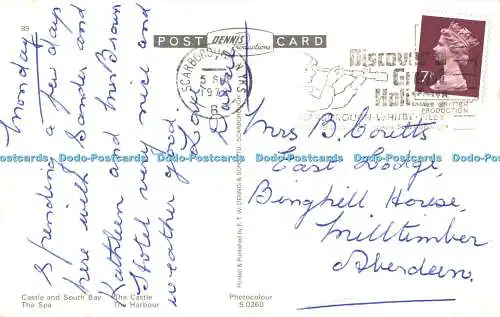 89
POST DENNIS Productions CARD
Monday
Spending a few days
here with Sandra and
Kathleen and Mrs Brown
Hotel very nice and
weather good.
SCARBOROUGH N. YKS
5
197
B
Discover a
Great
Holiday
SCARBOROUGH-WHITBY-FILEY
BRITISH
PRODUCTION
7
Mrs B. Coutts
East Lodge,
Binghill House,
Milltimber
Aberdeen.
Dodo-Postcards Dodo-Postcards Dodo-Postcards Dodo-Postcards Dodo-Postcards
Printed & Published by E. T. W. DENNIS & SONS LTD., SCARBOROUGH
Castle and South Bay The Castle
The Spa The Harbour
Photocolour
S.0260